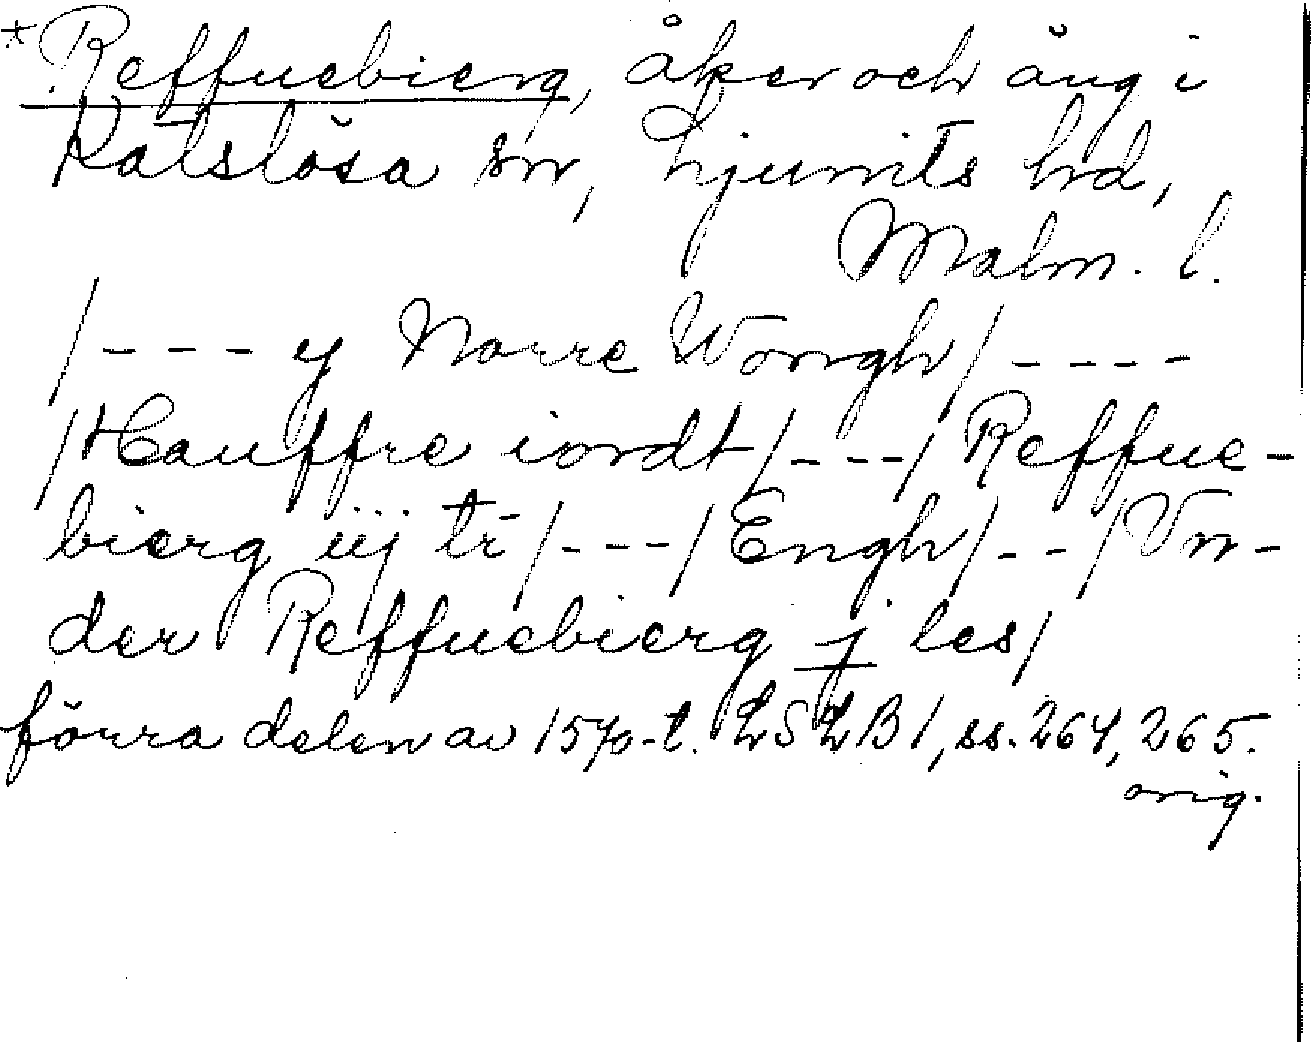 *Reffuebierg, åker och äng i
Katslösa sn, Ljunits hrd,
Malm. l.
/---- y Norre Wongh/----
/Hauffre iordt/---/ Reffue-
bierg iij tr̄/---/Engh/--/Vn-
der Reffuebierg j les/
förra delen av 1570-t. LSLB 1, ss. 264, 265.
orig.